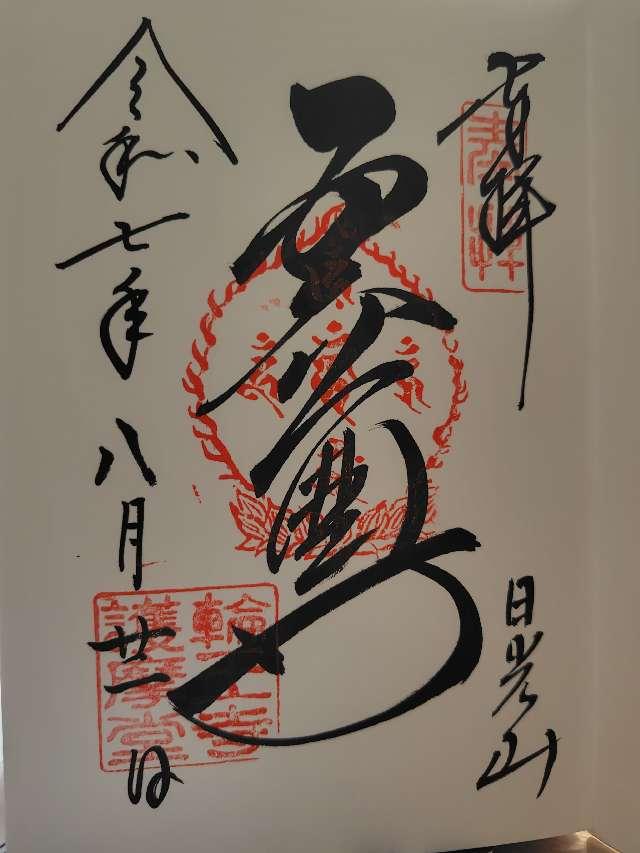 奉拝
日光山
五大尊
令和七年八月廿一日
輪王寺
護摩堂